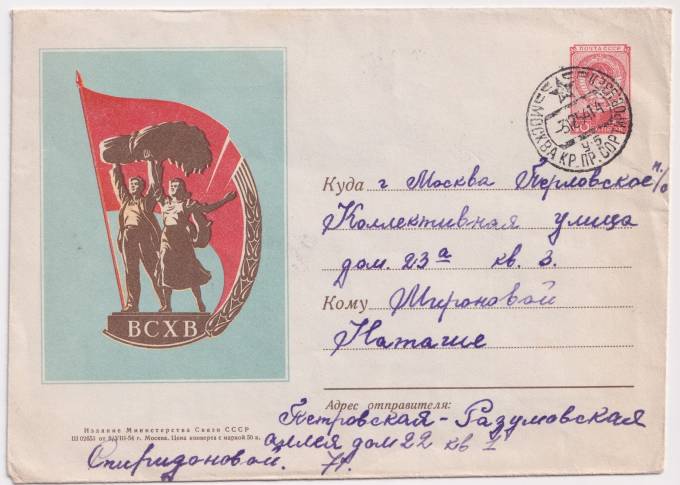 ПОЧТА СССР
МОСКВА КР. ПР. СОР
Куда г Москва Перловское п/о
Коллективная улица
дом. 23а кв. 3.
Кому Мироновой
Наташе
ВСХВ
Адрес отправителя:
Издание Министерства Связи СССР
Ш 02653 от 9/VIII-54 г. Москва. Цена конверта с маркой 50 к.
Петровская-Разумовская
аллея дом 22 кв 1
Спиридоновой.